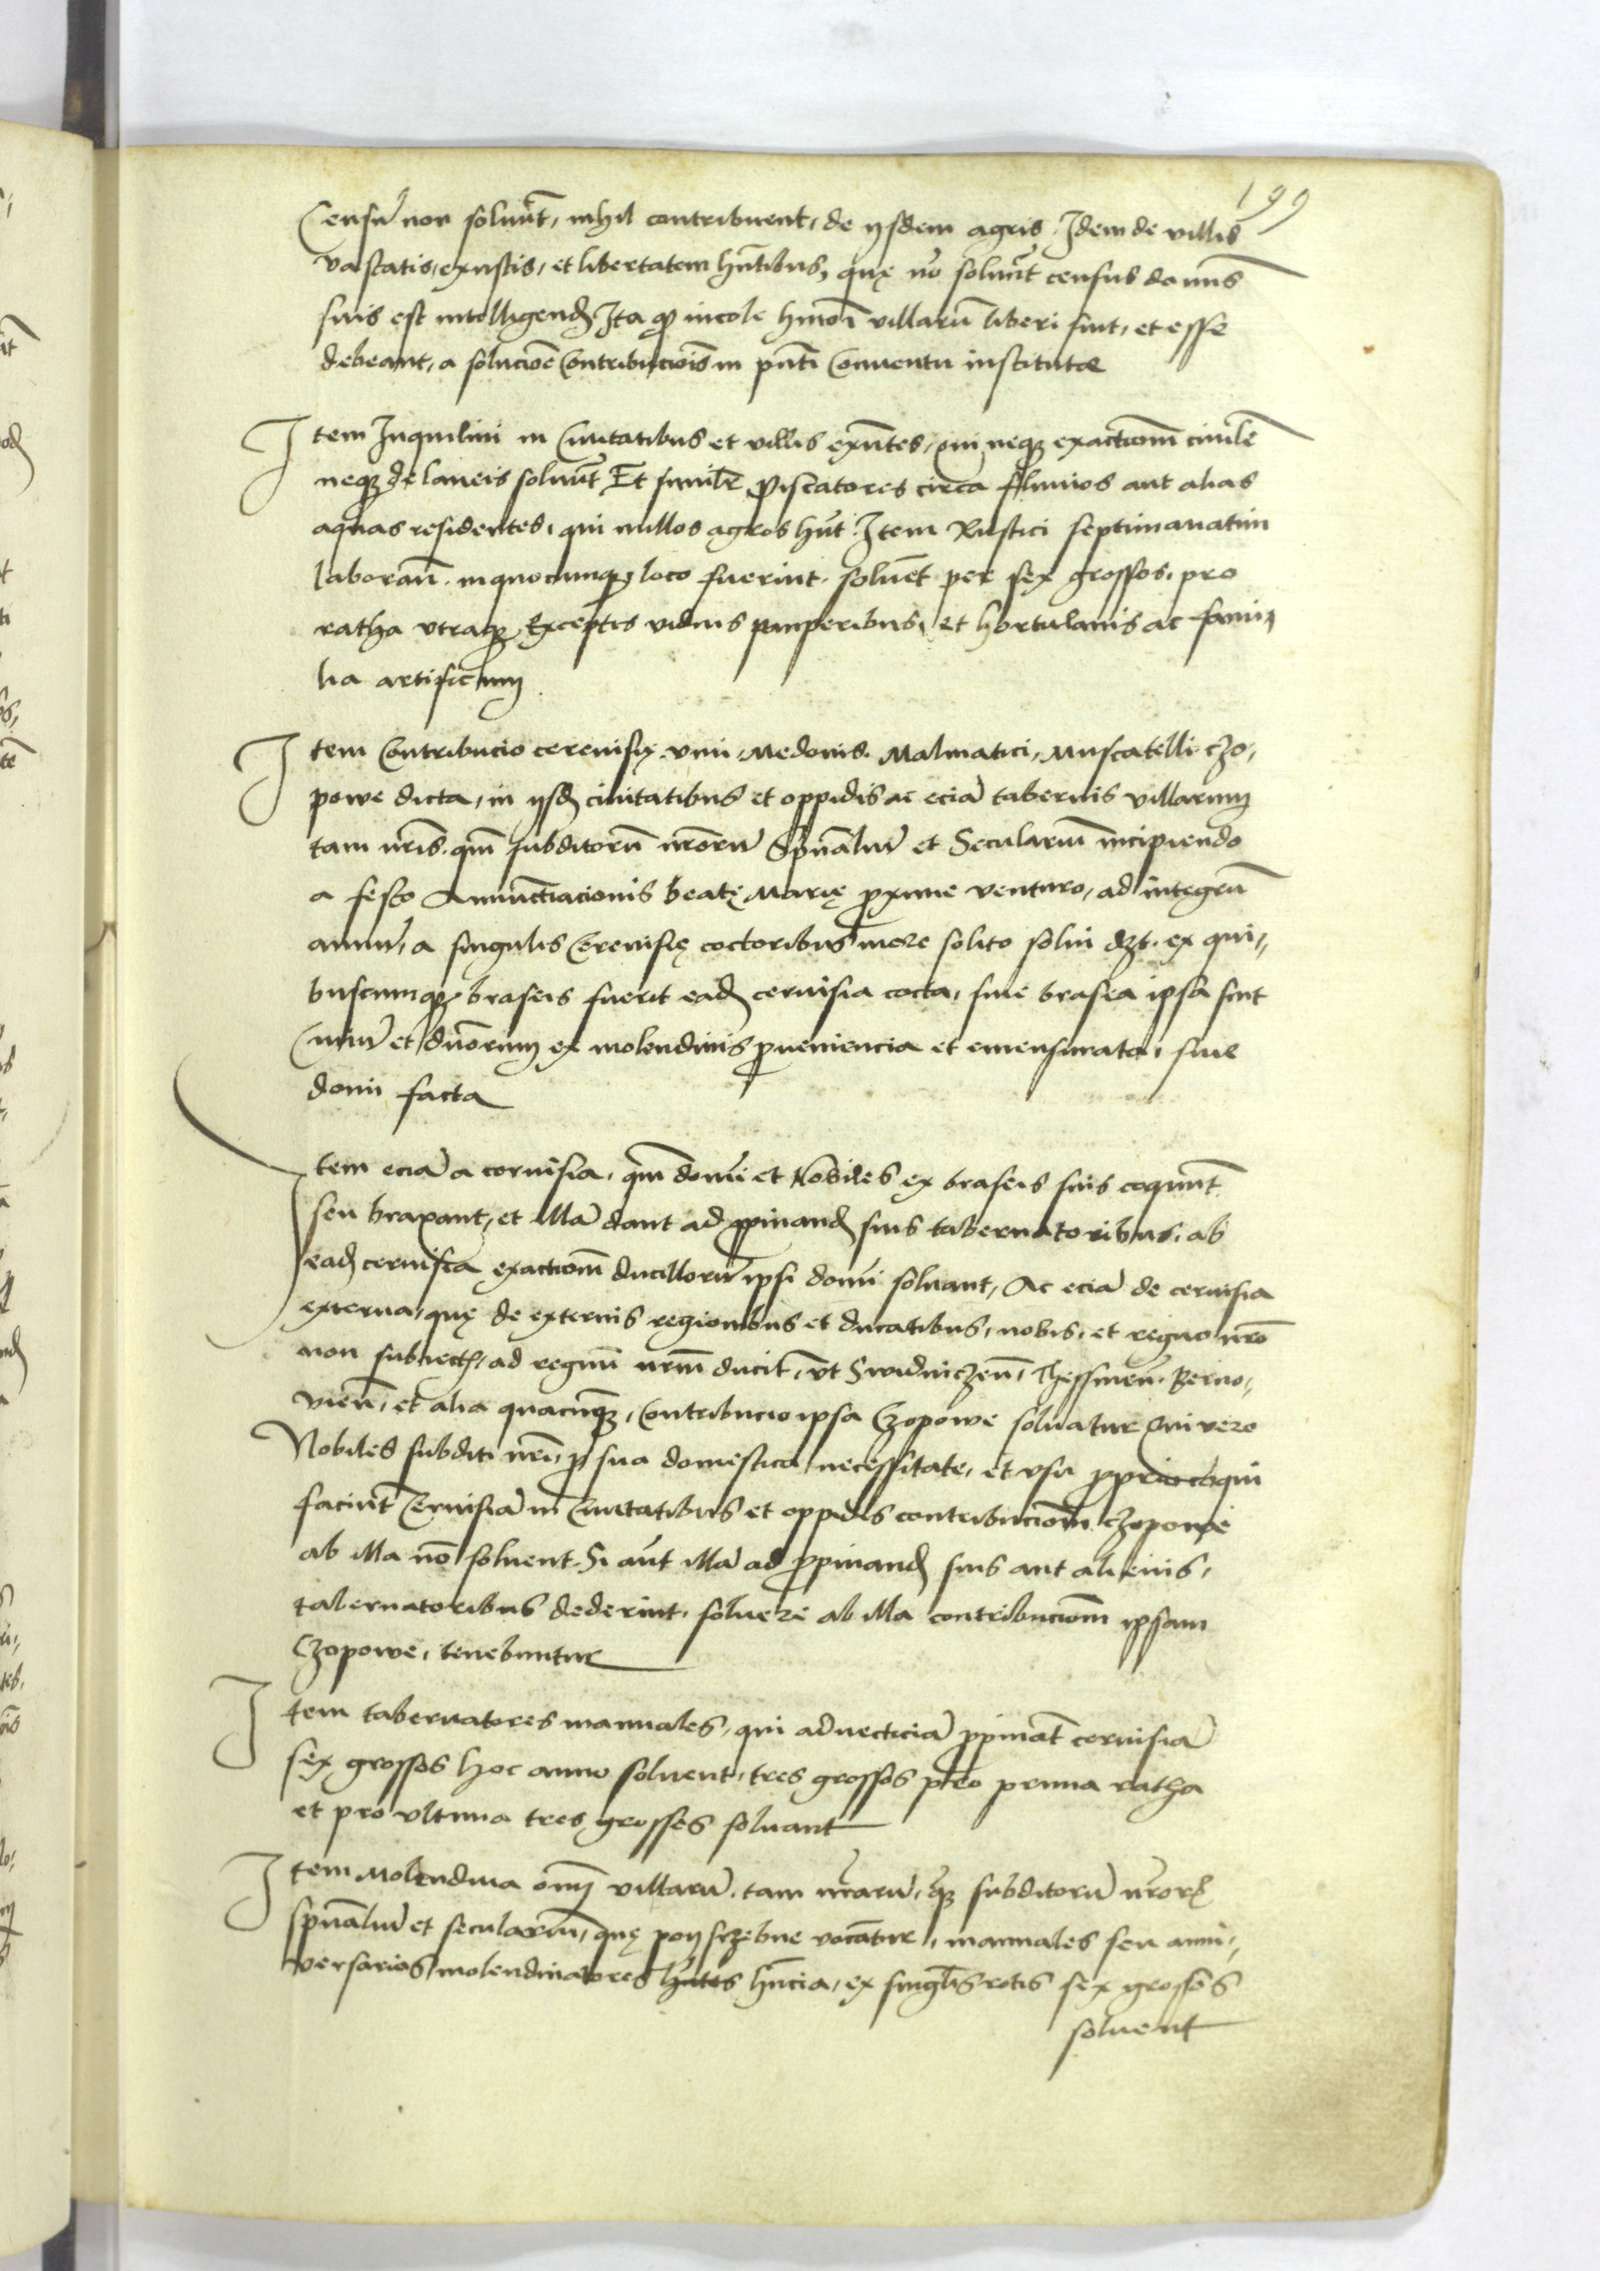 199
Censū non solvūt, nihil contribuent, de ijsdem agris. Idem de villis
vastatis, exustis, et libertatem hñtibus, quę nō solvūt census domīs
suis est intelligend Ita qp incole hmōi villarū liberi sint, et esse
debeant, a solucioē Contribucioīs in pñti Conventu institutae
Item Inquilini in Civitatibus et villis exñtes, qui neqz exactionē civilē
neqz de laneis solvūt Et similr Piscatores circa fluvios aut alias
aquas residentes, qui nullos agros hñt. Item Rustici septimanatim
laborañ. in quocumqz loco fuerint. solvēt per sex grossos, pro
ratha vtraqz Exceptis viduis pauperibus, et hortulanis ac fami-
lia artificum
Item Contribucio cerevisię, vini, Medonis, Malmatici, Muscatelli czo-
powe dicta, in ijsd civitatibus et oppidis ac eciā tabernis villarum
tam nr̄is, qm̄ subditorū nr̄orū Spūaliū et Seculariū incipiendo
a festo Annuncciacionis beatę Marię proxime venturo, ad integrū
annū, a singulis Cerevisię coctoribus more solito solvi dzt. ex qui-
buscumqz braseis fuerit ead cervisia cocta, sive brasea ipsa sint
Civiū et dnōrum ex molendinis proveniencia et emensurata, sive
domi facta
Item eciā a cervisia, qm̄ domī et Nobiles ex braseis suis coquūnt
seu braxant, et illā dant ad propinand suis tabernatoribus, ab
ead cervisia exactionē ducillorū ipsi domī solvant, Ac eciā de cervisia
externa, quę de externis regionibus et ducatibus, nobis, et regno nrō
non subiectis, ad regnū nrm̄ ducit, vt Swidniczeñ, Thessineñ, Berno-
vieñ, et alia quacūqz, Contribucio ipsa Czopowe solvatur Qui vero
Nobiles subditi nrī, pro sua domestica necessitate, et vsu proprio coqui
faciūt Cervisiā in Civitatibus et oppidis contribucionē czopowe
ab illa nō solvent. Si aūt illā ad propinand suis aut alienis,
tabernatoribus dederint, solvere ab illa contribucionē ipsam
Czopowe, tenebuntur
Item tabernatores manuales, qui advecticiā propināt cervisiā
sex grossos hoc anno solvent, tres grossos pro prima ratha
et pro vltima tres grossos solvant
Item Molendina omī villarū, tam nr̄arū, qz subditorū nr̄orū
spūaliū et seculariū, quę poij sczebne vocātur, manuales seu anni-
versarios molendinatores hñtes hñcia, ex singlis rotis sex grossos
solvent